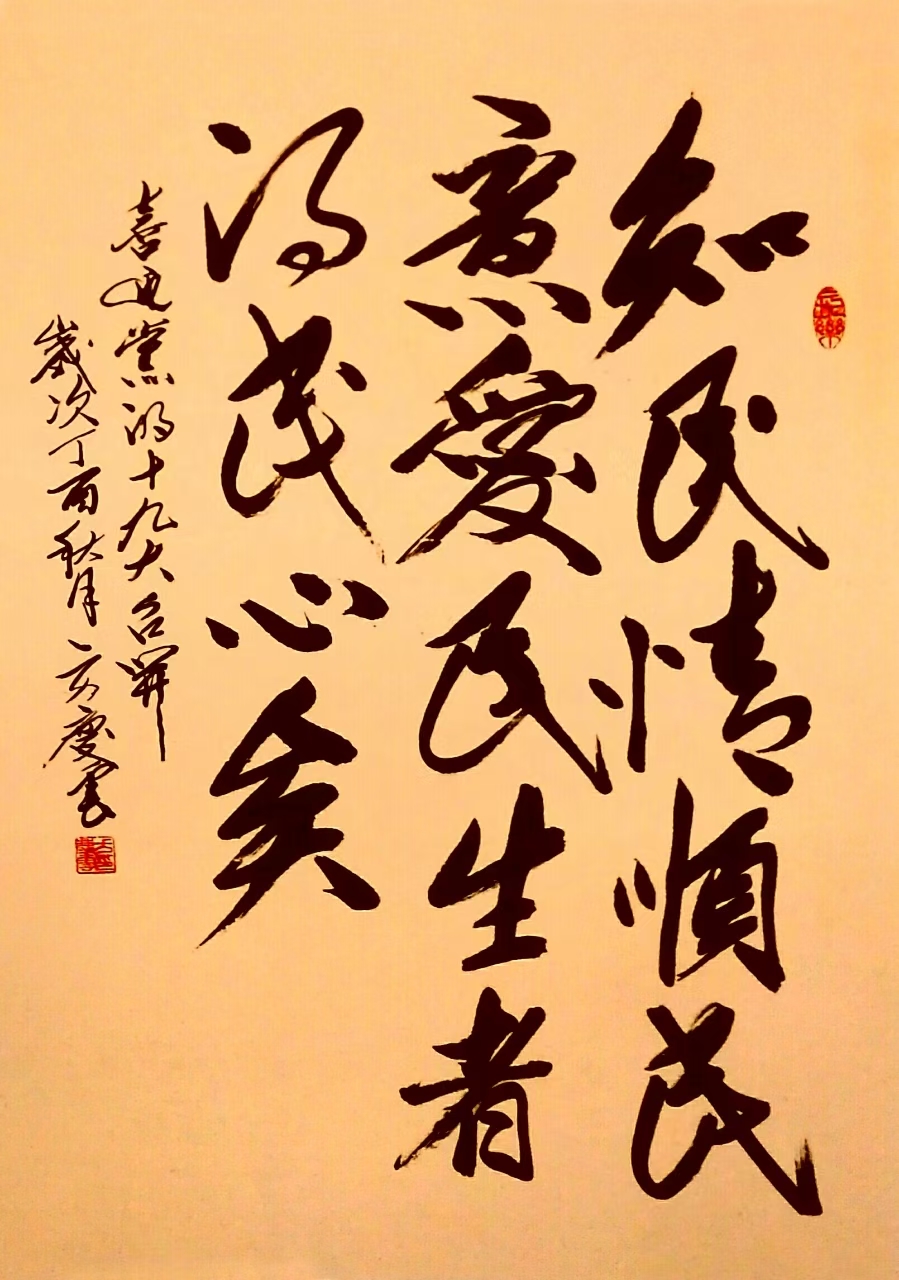 知民情順民
意愛民生者
得民心矣
喜迎黨的十九大召開
歲次丁酉秋月
慶雲
長樂